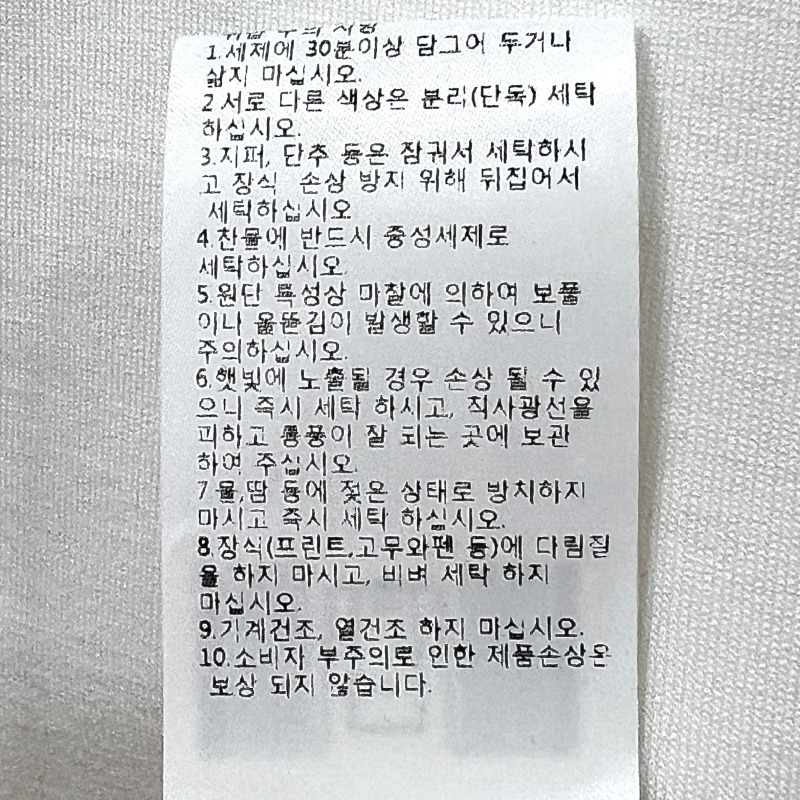 취급 주의 사항
1.세제에 30분이상 담그어 두거나
삶지 마십시오.
2.서로 다른 색상은 분리(단독) 세탁
하십시오.
3.지퍼, 단추 등은 잠궈서 세탁하시
고 장식 손상 방지 위해 뒤집어서
세탁하십시오
4.찬물에 반드시 중성세제로
세탁하십시오.
5.원단 특성상 마찰에 의하여 보풀
이나 올뜯김이 발생할 수 있으니
주의하십시오.
6.햇빛에 노출될 경우 손상 될 수 있
으니 즉시 세탁 하시고, 직사광선을
피하고 통풍이 잘 되는 곳에 보관
하여 주십시오.
7.물,땀 등에 젖은 상태로 방치하지
마시고 즉시 세탁 하십시오.
8.장식(프린트,고무와펜 등)에 다림질
을 하지 마시고, 비벼 세탁 하지
마십시오.
9.기계건조, 열건조 하지 마십시오.
10.소비자 부주의로 인한 제품손상은
보상 되지 않습니다.